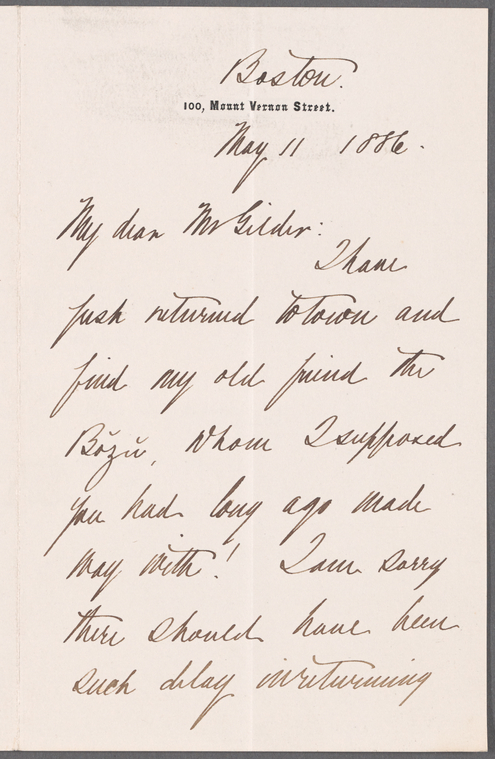 Boston.
100, Mount Vernon Street.
May 11 1886.
My dear Mr Gilder:
I have
just returned to town and
find my old friend the
Bŏzŭ, whom I supposed
you had long ago made
way with! I am sorry
there should have been
such delay in returning